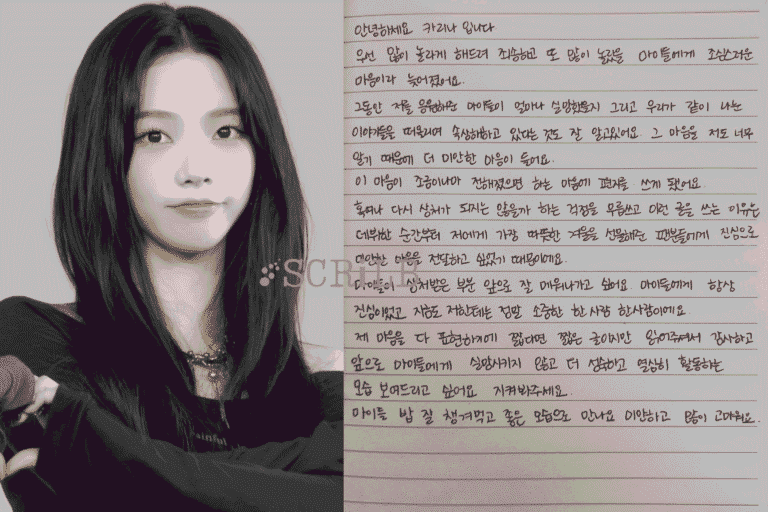 안녕하세요 카리나 입니다
우선 많이 놀라게 해드려 죄송하고 또 많이 놀랐을 마이들에게 조심스러운
마음이라 늦어졌어요.
그동안 저를 응원해준 마이들이 얼마나 실망했을지 그리고 우리가 같이 나눈
이야기들을 떠올리며 속상해하고 있다는 것도 잘 알고있어요. 그 마음을 저도 너무
알기 때문에 더 미안한 마음이 들어요.
이 마음이 조금이나마 전해졌으면 하는 마음에 편지를 쓰게 됐어요.
혹여나 다시 상처가 되지는 않을까 하는 걱정을 무릅쓰고 이런 글을 쓰는 이유는
데뷔한 순간부터 저에게 가장 따뜻한 겨울을 선물해준 팬분들에게 진심으로
미안한 마음을 전달하고 싶었기 때문이에요.
마이들이 상처받은 부분 앞으로 잘 메워나가고 싶어요. 마이들에게 항상
진심이었고 지금도 저한테는 정말 소중한 한 사람 한사람이에요.
제 마음을 다 표현하기에 짧다면 짧은 글이지만 읽어주셔서 감사하고
앞으로 마이들에게 실망시키지 않고 더 성숙하고 열심히 활동하는
모습 보여드리고 싶어요 지켜봐주세요.
마이들 밥 잘 챙겨먹고 좋은 모습으로 만나요 미안하고 많이 고마워요.
ainful